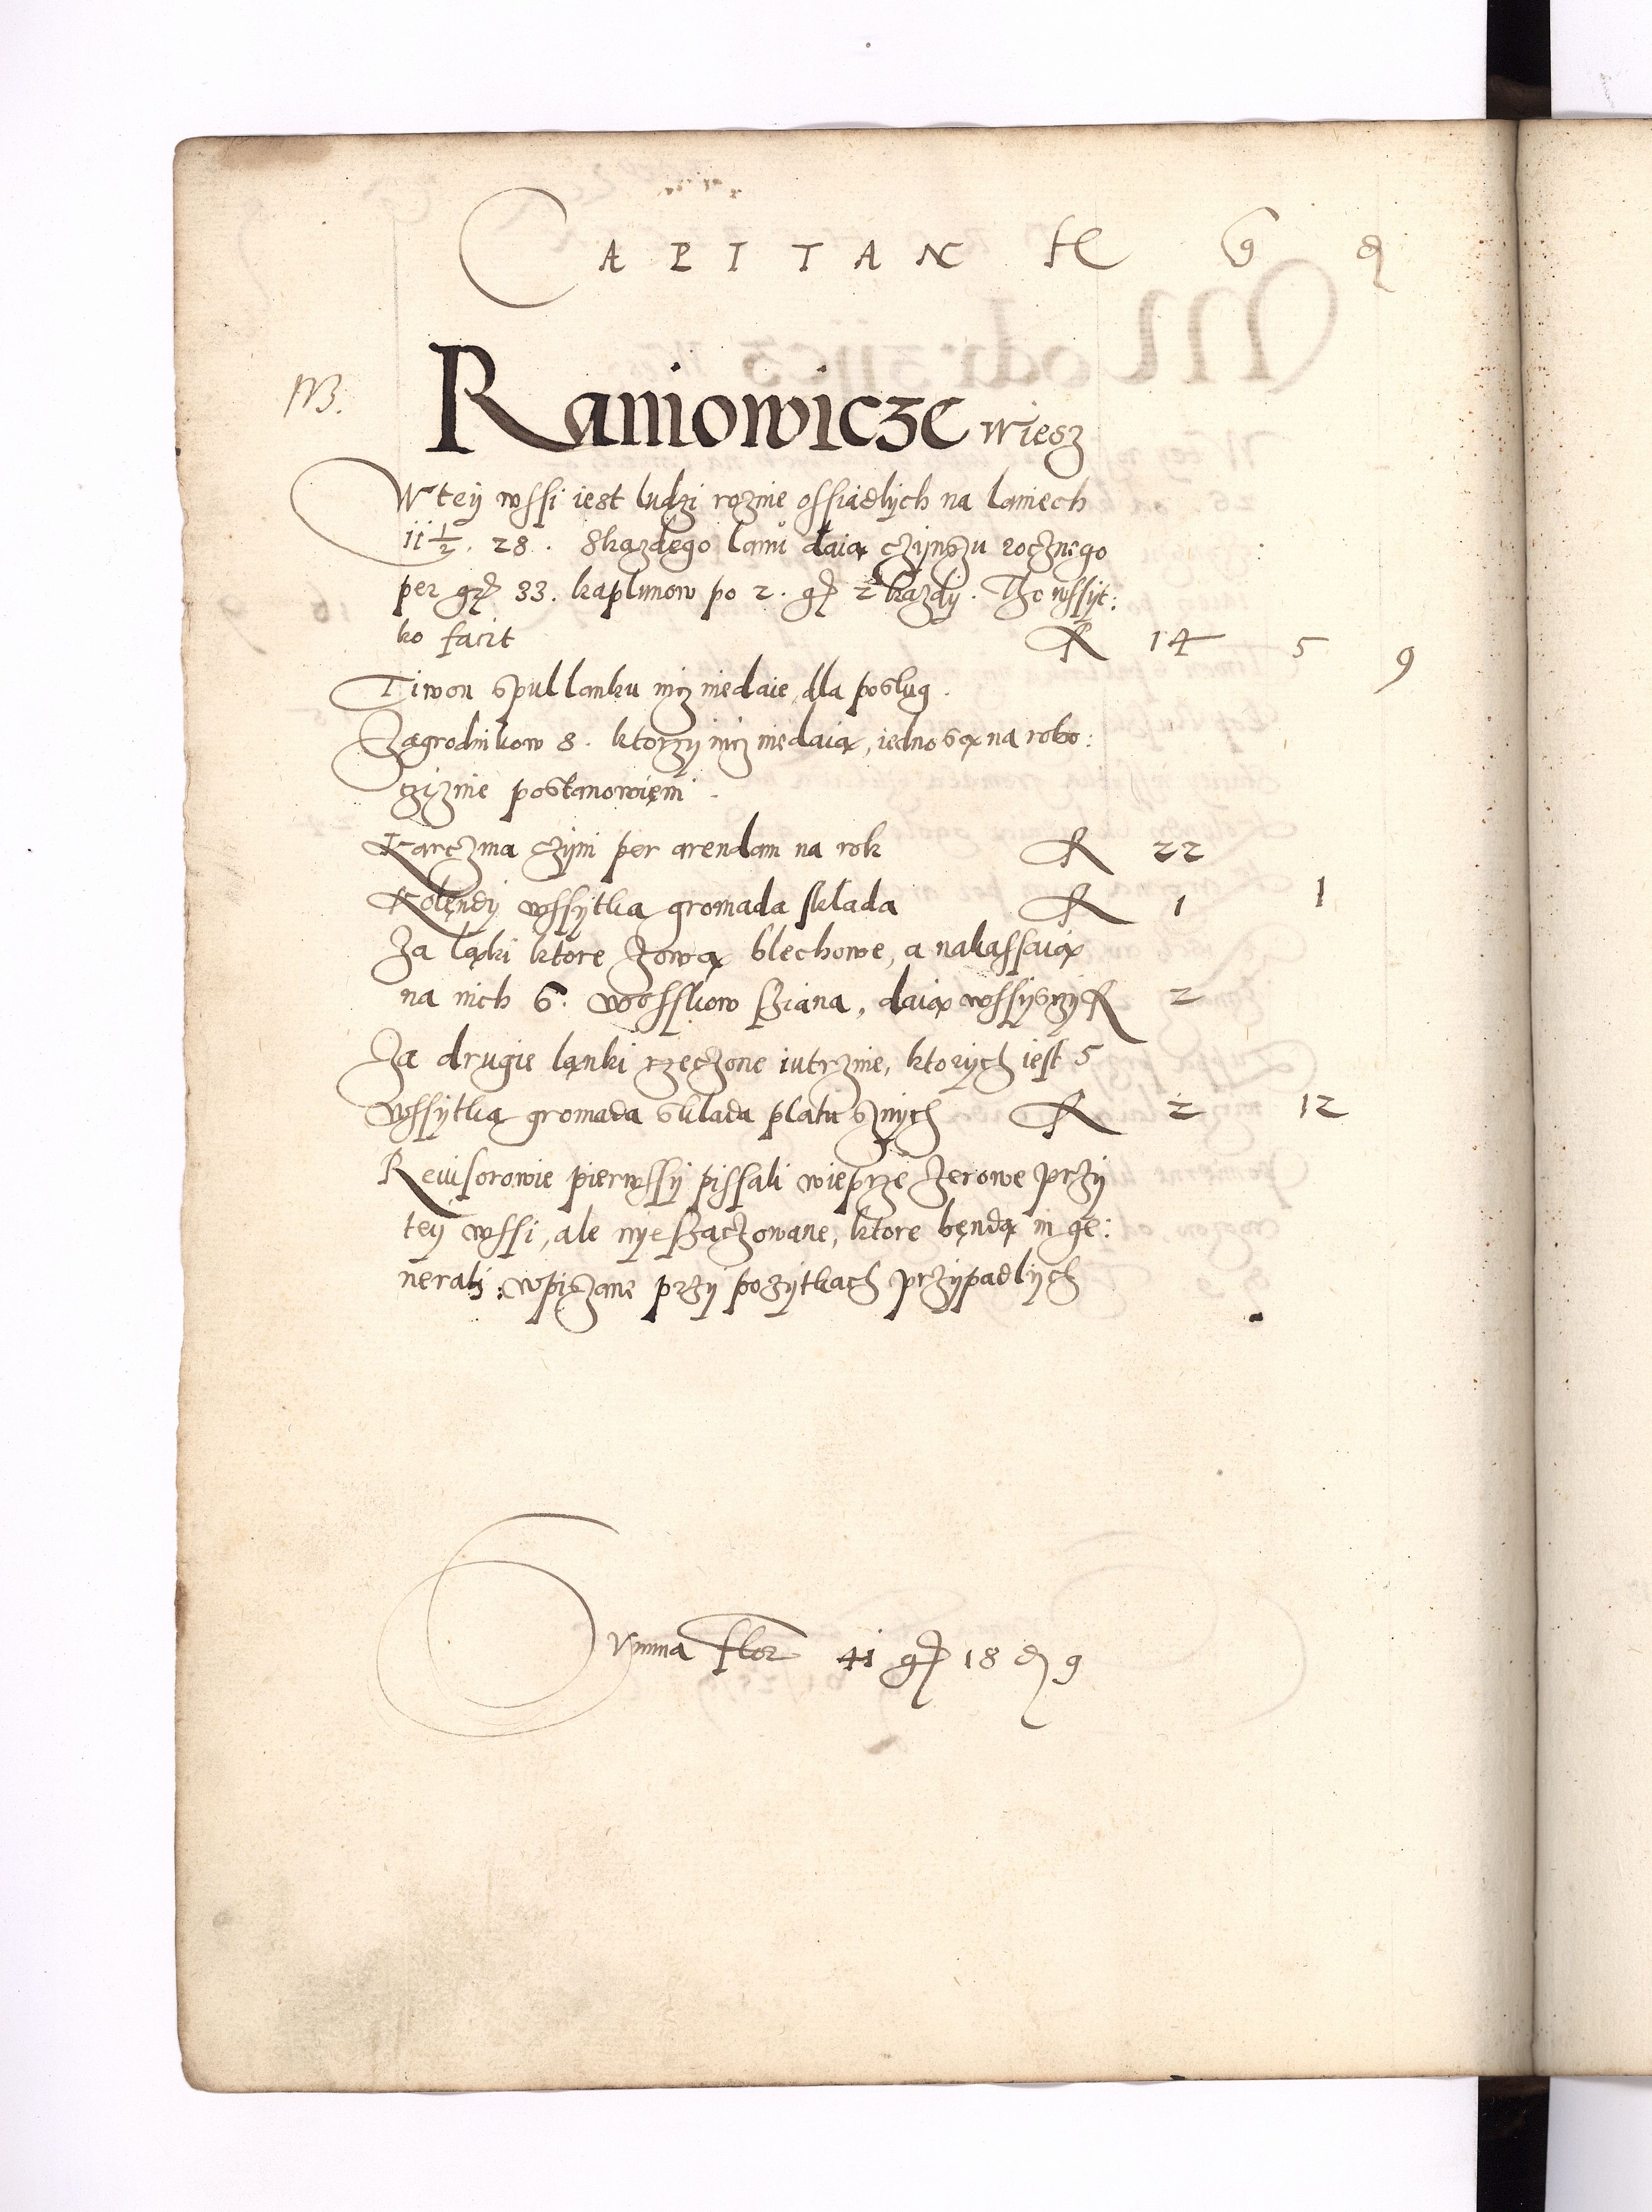 CAPITAN fl g d
NB.
Raniowicze wiesz
W tey wssi iest ludzi roznie ossiadlych na laniech
11 1/2. 28. Skazdego lanu daią czynszu rocznego
per gr 33. kaplunow po 2. gr 2 kazdy. Tho wssyt:
ko facit R 14 5 9
Tiwon spul lanku nicz niedaie, dla poslug.
Zagrodnikow 8. ktorzy nicz niedaią, iedno są na robo:
czyznie postanowięni.
Karczma czyni per arendam na rok R 22
Kolendy wssytka gromada sklada R 1 1
Za ląki ktore zową blechowe, a nakassaią
na nich 6. wosskow sziana, daią wssysczy R 2
Za drugie ląnki rzeczone iutrznie, ktorych iest 5
wssytka gromada sklada platu sznych R 2 12
Reuisorowie pierwssy pissali wieprze zerowe przy
tey wssi, ale nye szaczowane, ktore będą in ge:
nerali wpiszane przy pozytkach przypadlych
Summa flor 41 gr 18 d 9